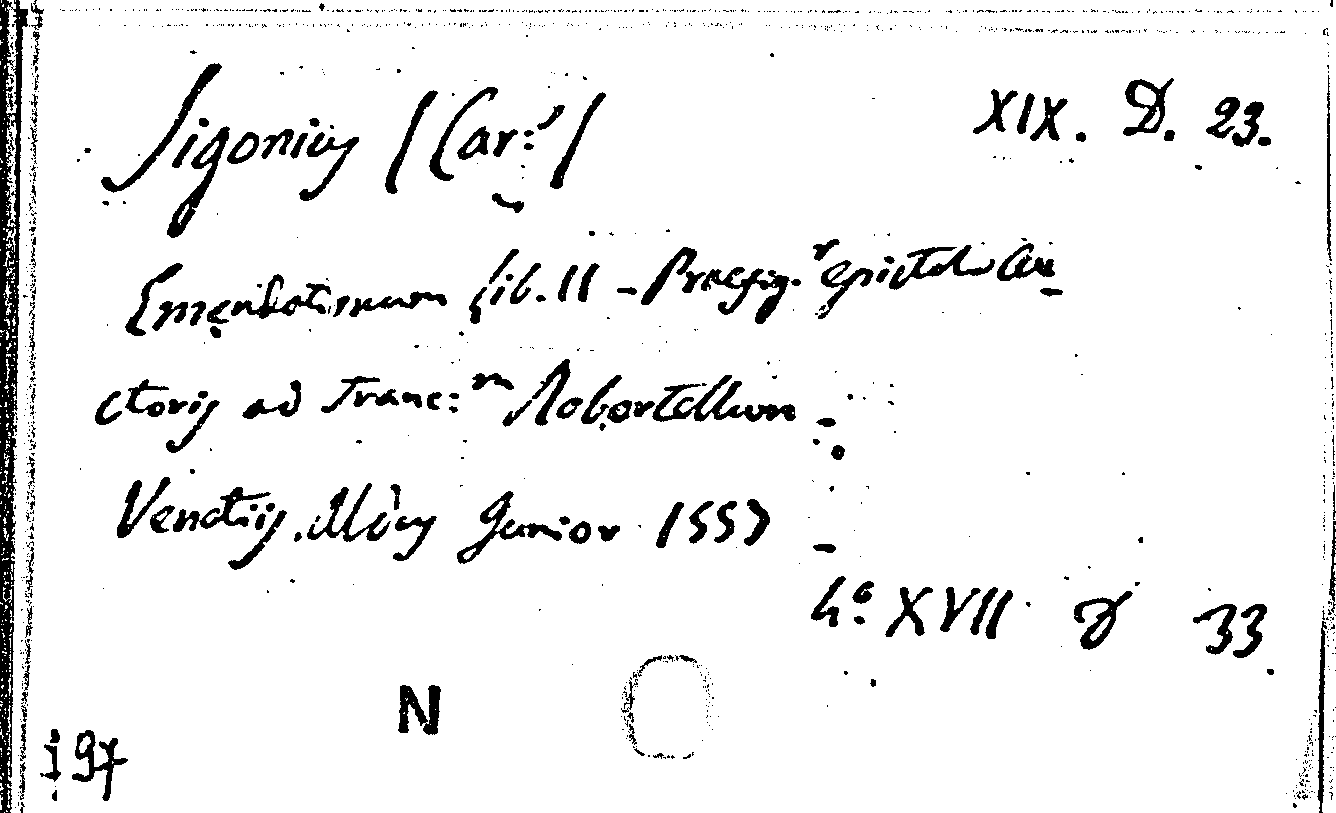 Sigonius /Car:s/ XIX. D. 23.
Emendationum Lib. II - Praefig.r epistola Au_
ctoris ad Franc:m Robortellum -
Venetiis. Aldus Junior 1557 -
4o: XVII 33
N
197